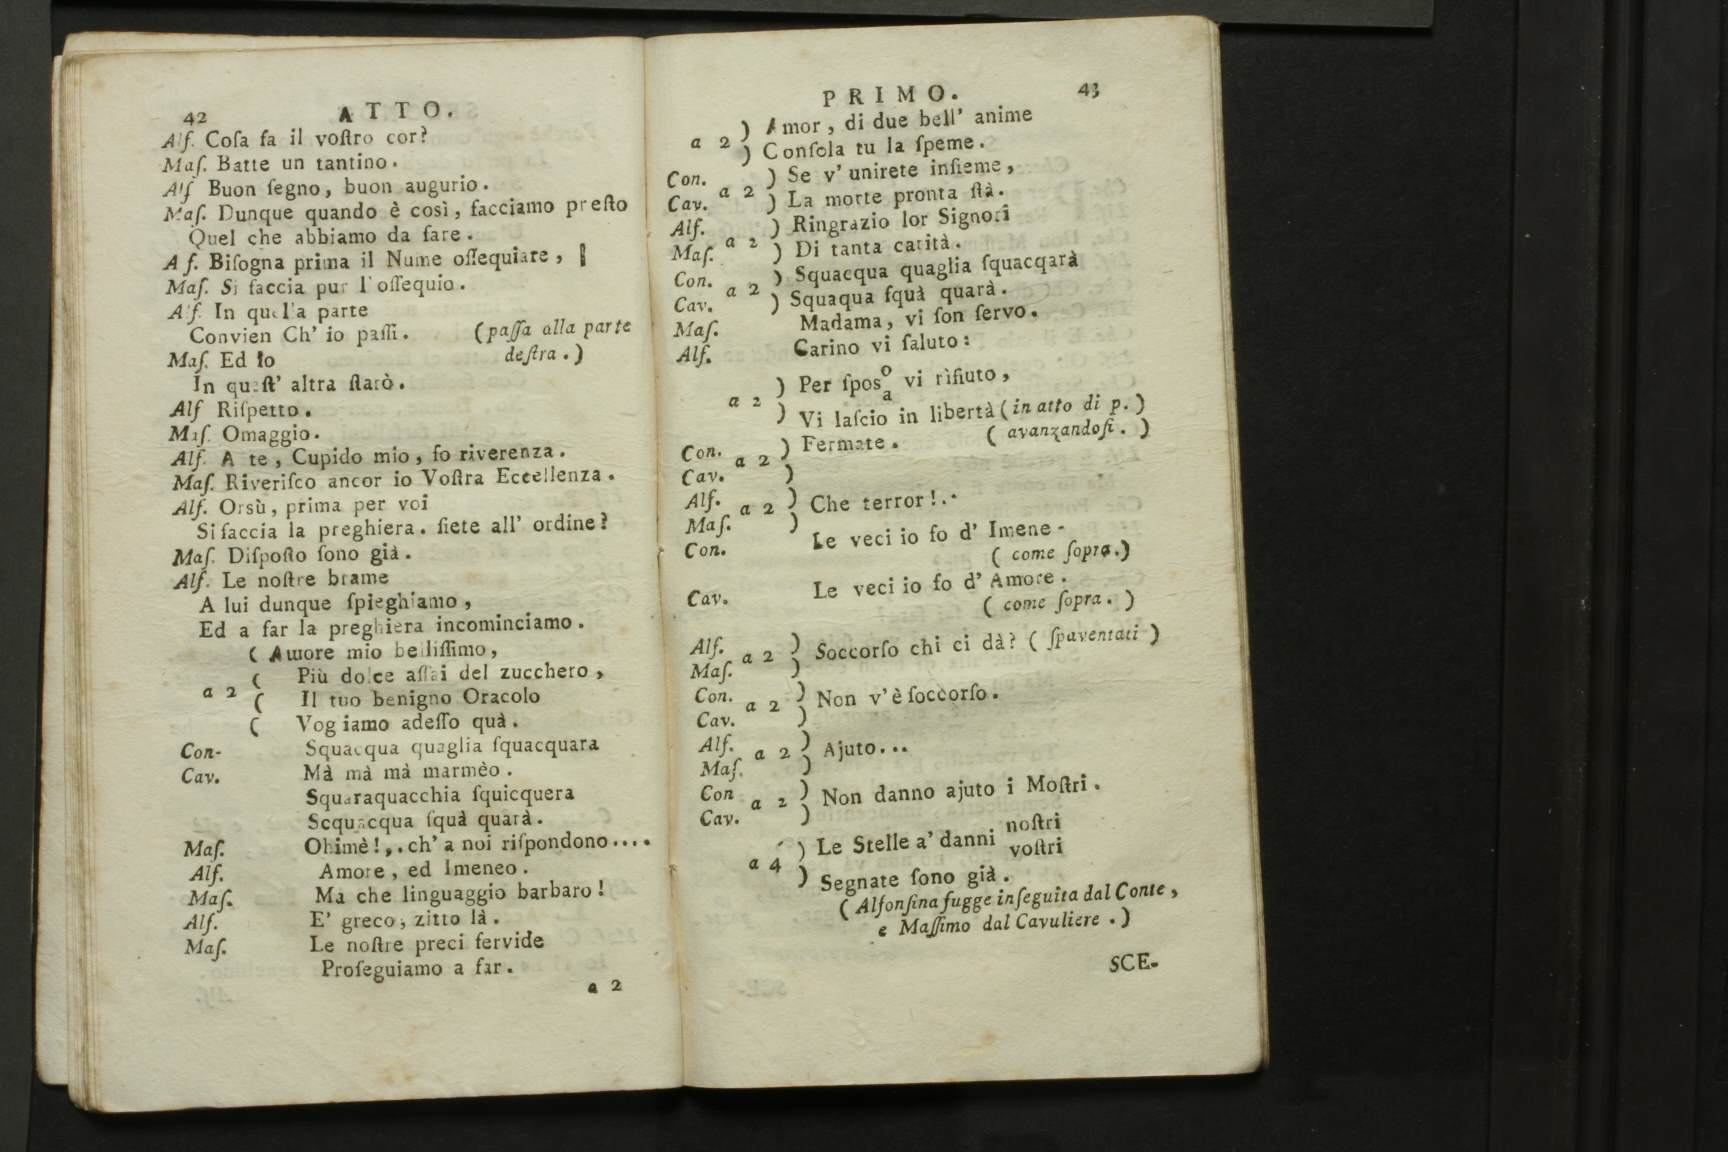 42 ATTO.
Alſ. Coſa fa il voſtro cor?
Maſ. Batte un tantino.
Alſ Buon ſegno, buon augurio.
Maſ. Dunque quando è così, facciamo preſto
Quel che abbiamo da fare.
Aſ. Biſogna prima il Nume oſſequiare,
Maſ. Si faccia pur l'oſſequio.
Alſ. In quell'a parte
Convien Ch' io paſſi. (paſſa alla parte
Maſ. Ed Io deſtra.)
In queſt' altra ſtarò.
Alſ Riſpetto.
Maſ. Omaggio.
Alſ. A te, Cupido mio, fo riverenza.
Maſ. Riveriſco ancor io Voſtra Eccellenza.
Alſ. Orsù, prima per voi
Si faccia la preghiera. ſiete all' ordine?
Maſ. Diſpoſto ſono già.
Alſ. Le noſtre brame
A lui dunque ſpieghiamo,
Ed a far la preghiera incominciamo.
( Amore mio belliſſimo,
( Più dolce aſſai del zucchero,
a 2 ( Il tuo benigno Oracolo
( Vogiamo adeſſo quà.
Con- Squacqua quaglia ſquacquara
Cav. Mà mà mà marmèo.
Squaraquacchia ſquicquera
Scquacqua ſquà quarà.
Maſ. Ohimè!,.ch' a noi riſpondono....
Alſ. Amore, ed Imeneo.
Maſ. Ma che linguaggio barbaro!
Alſ. E' greco, zitto là.
Maſ. Le noſtre preci fervide
Proſeguiamo a far.
a 2
PRIMO. 43
) Amor, di due bell' anime
a 2 ) Conſola tu la ſpeme.
Con. ) Se v' unirete inſieme,
Cav. a 2 ) La morte pronta ſtà.
Alſ. ) Ringrazio lor Signori
Maſ. a 2 ) Di tanta carità.
Con. ) Squacqua quaglia ſquacqarà
Cav. a 2 ) Squaqua ſquà quarà.
Maſ. Madama, vi ſon ſervo.
Alſ. Carino vi ſaluto:
) Per ſpos o a vi rìfiuto,
a 2 ) Vi laſcio in libertà (in atto di p.)
Con. ) Fermate. ( avanzandoſi. )
Cav. a 2 )
Alſ. a 2 ) Che terror!..
Maſ. )
Con. Le veci io fo d' Imene-
( come ſopra.)
Cav. Le veci io fo d' Amore.
( come ſopra. )
Alſ. a 2 ) Soccorſo chi ci dà? ( ſpaventati )
Maſ. )
Con. a 2 ) Non v'è ſoccorſo.
Cav. )
Alſ. a 2 ) Ajuto...
Maſ. )
Con a 2 ) Non danno ajuto i Moſtri.
Cav. )
) Le Stelle a' danni noſtri
a 4 voſtri
) Segnate ſono già.
( Alfonſina fugge inſeguita dal Conte,
e Maſſimo dal Cavuliere.)
SCE-